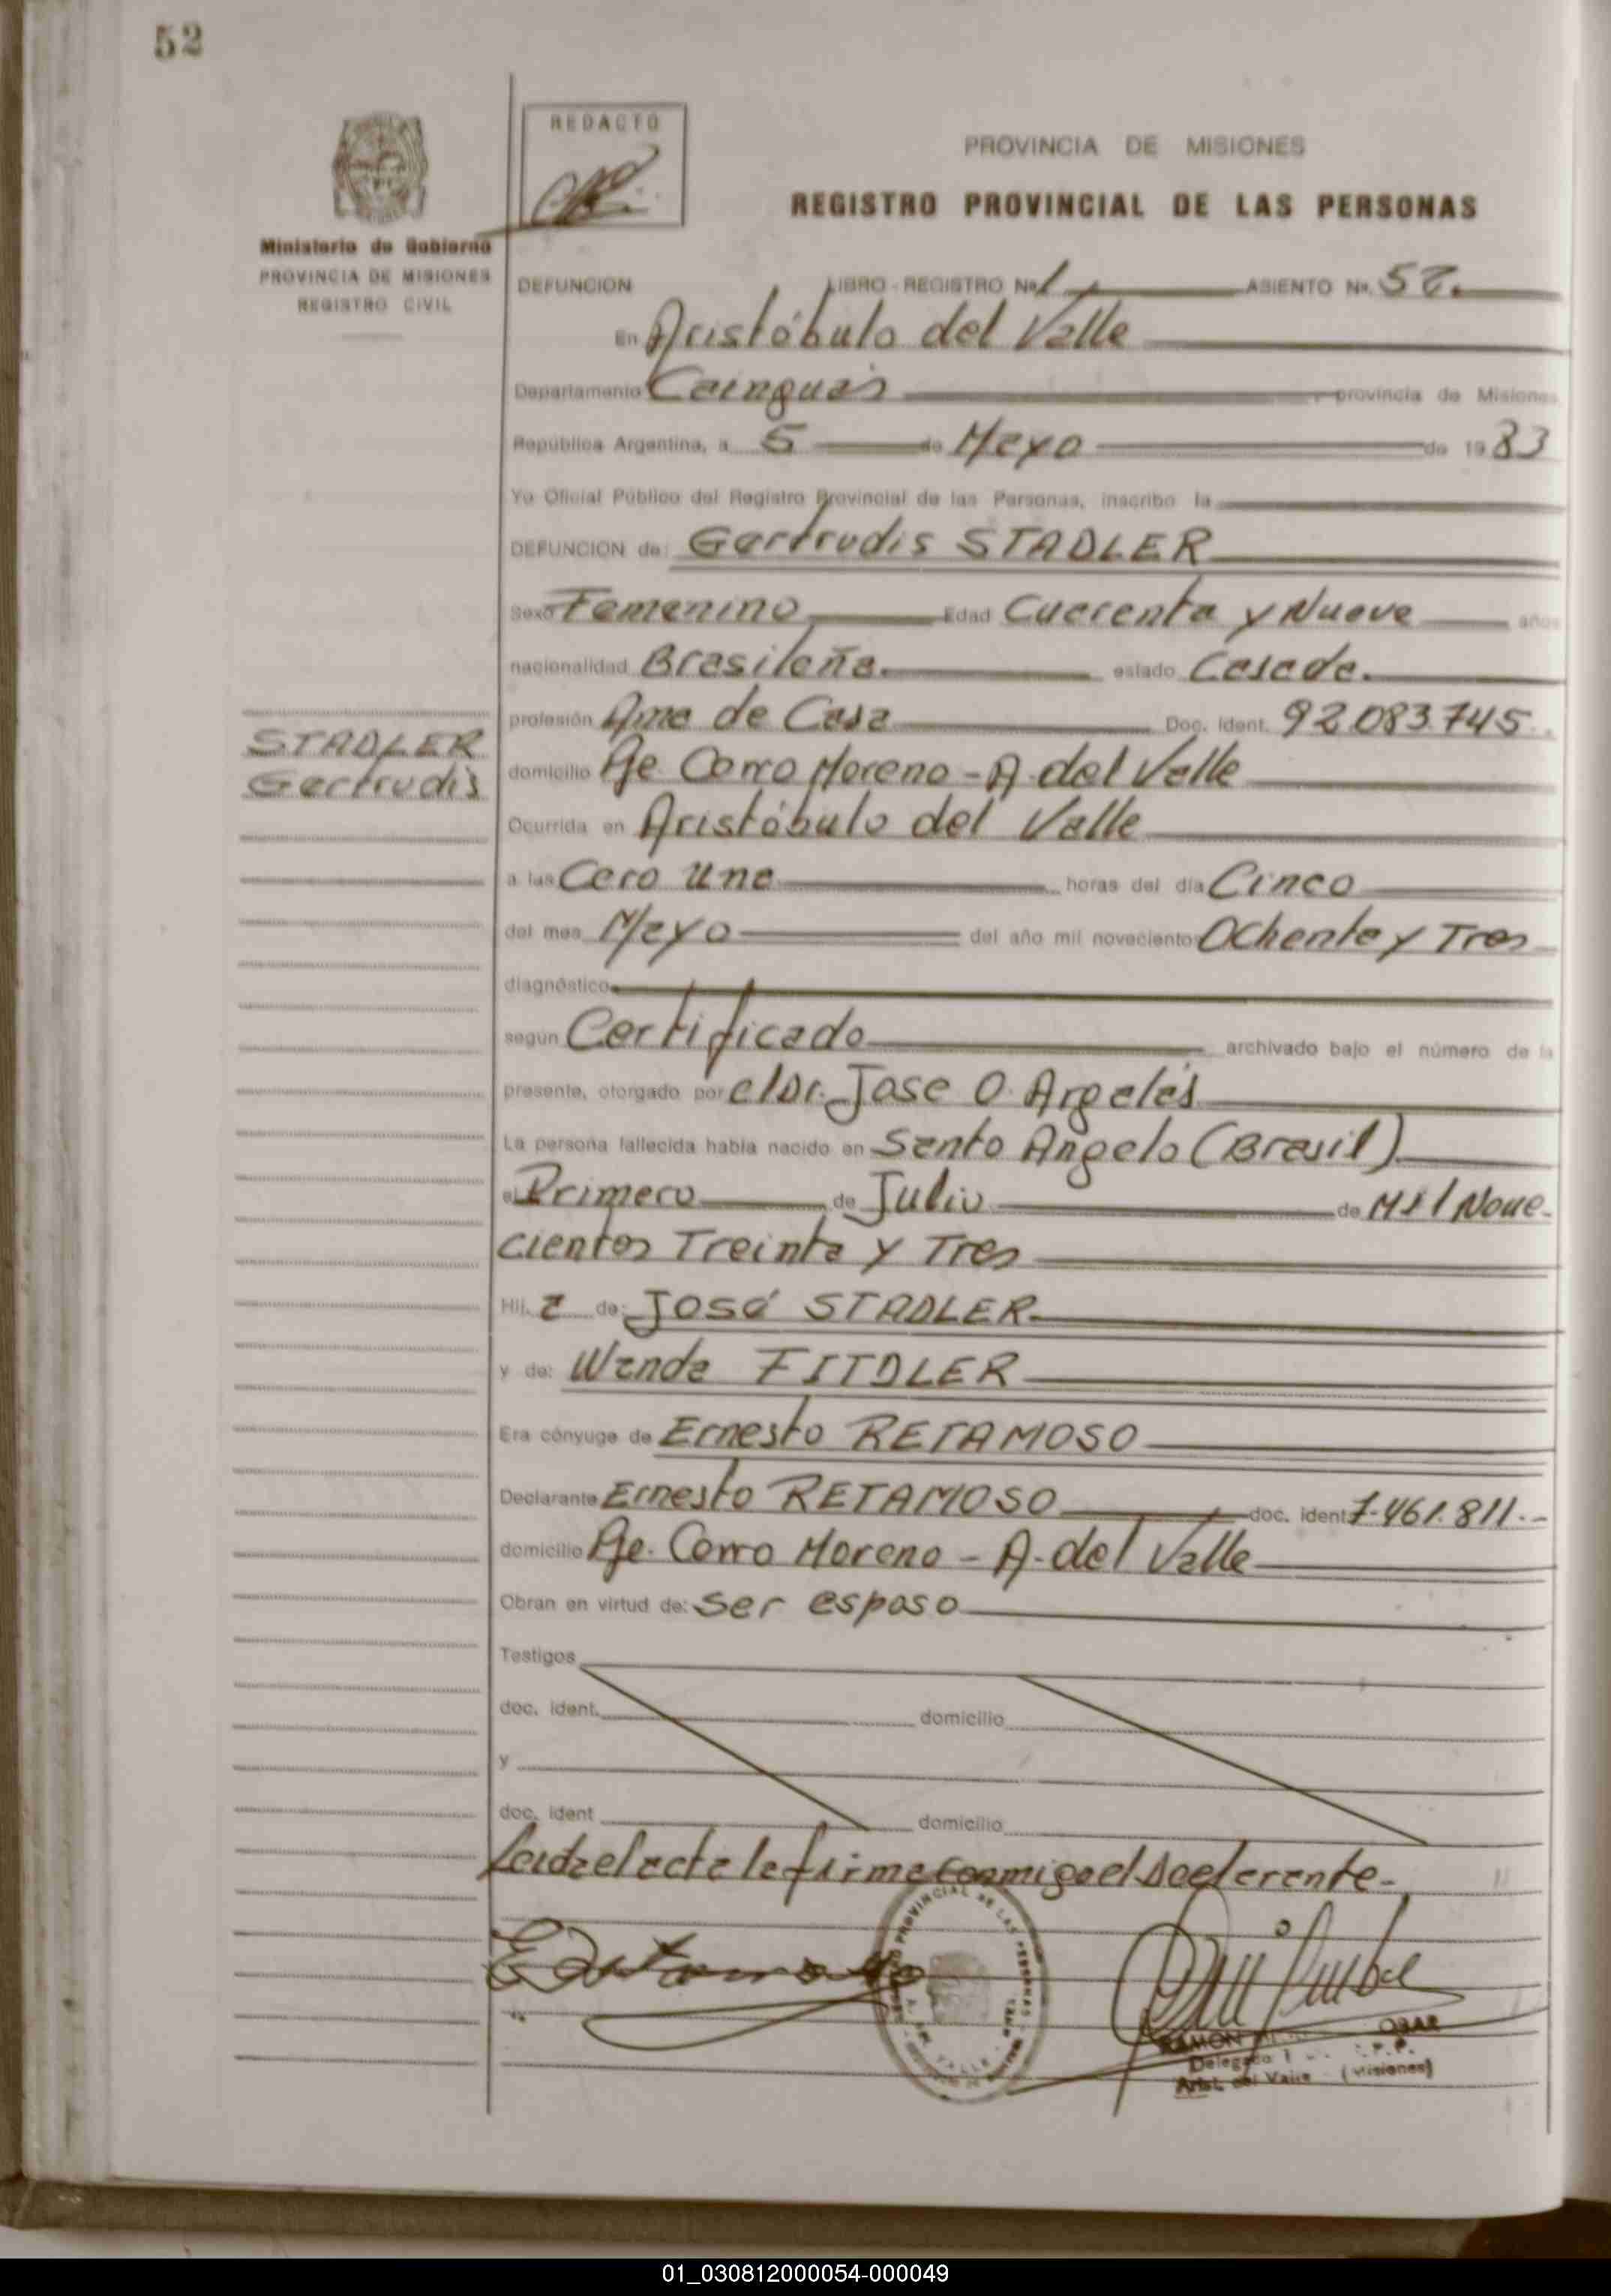 52
REDACTO
PROVINCIA DE MISIONES
REGISTRO PROVINCIAL DE LAS PERSONAS
Ministerio de Gobierno
PROVINCIA DE MISIONES
REGISTRO CIVIL
DEFUNCION LIBRO - REGISTRO No. 1 ASIENTO No. 52.
En Aristóbulo del Valle
Departamento Cainguás provincia de Misiones
República Argentina, a 5 de Mayo de 1983
Yo Oficial Público del Registro Provincial de las Personas, inscribo la
DEFUNCION de: Gertrudis STADLER
Sexo Femenino Edad Cuarenta y Nueve años
nacionalidad Brasileña. estado Casada.
profesión Ama de Casa Doc. Ident. 92.083.745.
STADLER
Gertrudis
domicilio Pje. Cerro Moreno - A. del Valle
Ocurrida en Aristóbulo del Valle
a las Cero una horas del día Cinco
del mes Mayo del año mil novecientos Ochenta y Tres
diagnóstico
según Certificado archivado bajo el número de la
presente, otorgado por el Dr. Jose O. Argelés
La persona fallecida había nacido en Santo Angelo (Brasil)
el Primero de Julio de Mil Nove-
cientos Treinta y Tres
Hij. a de: José STADLER
y de: Wanda FITDLER
Era cónyuge de Ernesto RETAMOSO
Declarante Ernesto RETAMOSO doc. ident 7.461.811.-
domicilio Pje. Cerro Moreno - A. del Valle
Obran en virtud de: ser esposo
Testigos
doc. ident. domicilio
y
doc. ident domicilio
Leida el acta la firma conmigo el declarante-
PROVINCIAL DE LAS PERSONAS
RAMON
Delegado
Arist. del Valle (Misiones)
01_030812000054-000049